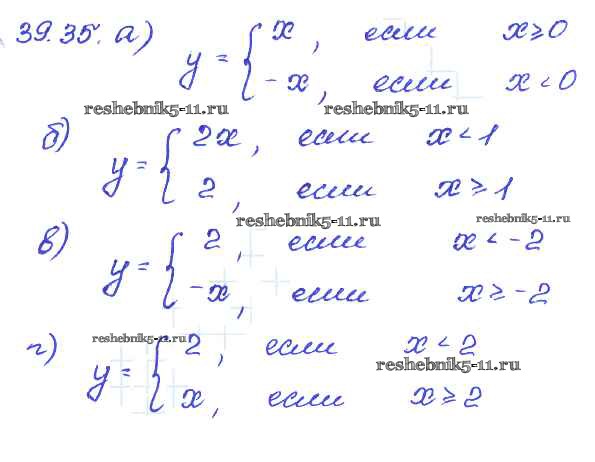 39.35. а) y = { x, если x ≥ 0
-x, если x < 0
reshebnik5-11.ru reshebnik5-11.ru
б) y = { 2x, если x < 1
2, если x ≥ 1
reshebnik5-11.ru reshebnik5-11.ru
в) y = { 2, если x < -2
-x, если x ≥ -2
reshebnik5-11.ru
г) y = { 2, если x < 2
reshebnik5-11.ru
x, если x ≥ 2